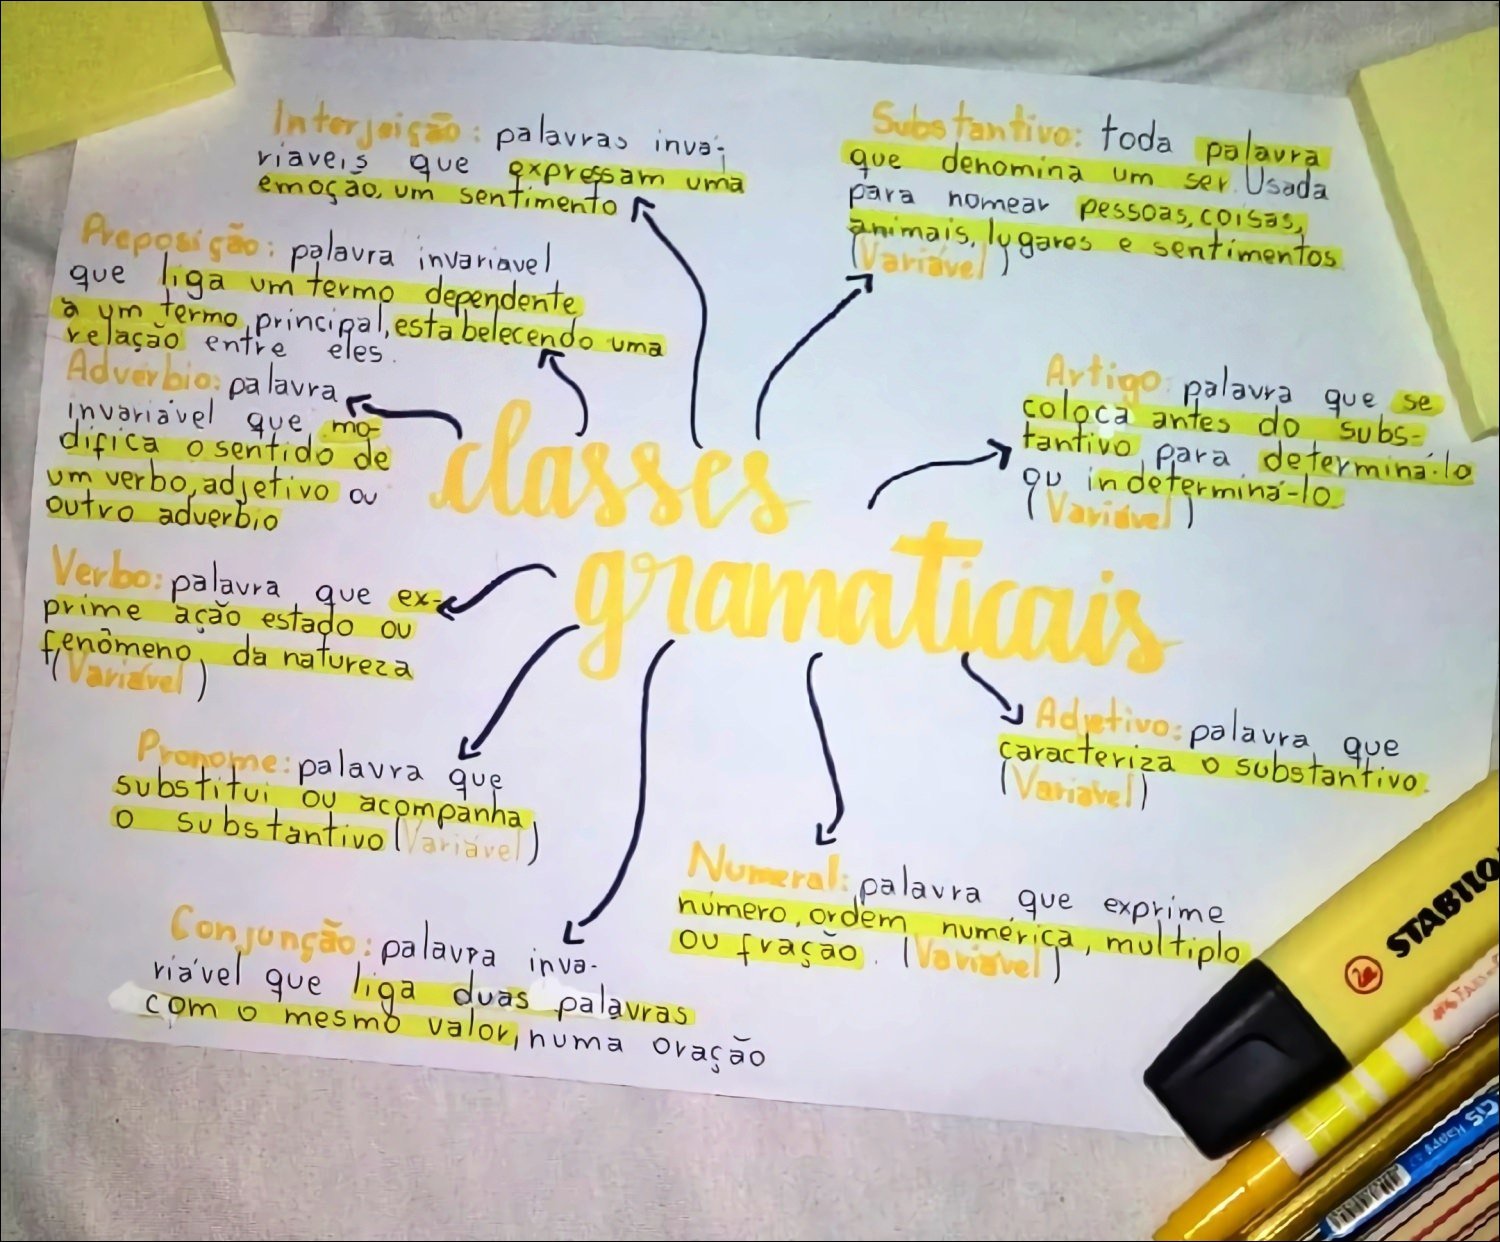 Interjeição: palavras inva-
riaveis que expressam uma
emoção, um sentimento
Substantivo: toda palavra
que denomina um ser. Usada
para nomear pessoas, coisas,
animais, lugares e sentimentos
(Variável)
Preposição: palavra invariavel
que liga um termo dependente
à um termo principal, estabelecendo uma
relação entre eles.
Advérbio: palavra
invariável que mo-
difica o sentido de
um verbo, adjetivo ou
outro adverbio
Artigo: palavra que se
coloca antes do subs-
tantivo para determiná-lo
ou indeterminá-lo.
(Variável)
classes
gramaticais
Verbo: palavra que ex-
prime ação estado ou
fenômeno da natureza
(Variável)
Adjetivo: palavra que
caracteriza o substantivo.
(Variável)
Pronome: palavra que
substitui ou acompanha
o substantivo (Variável)
Numeral: palavra que exprime
número, ordem numérica, multiplo
ou fração. (Variável)
Conjunção: palavra inva-
riável que liga duas palavras
com o mesmo valor, numa oração
STABILO
CIS Happy